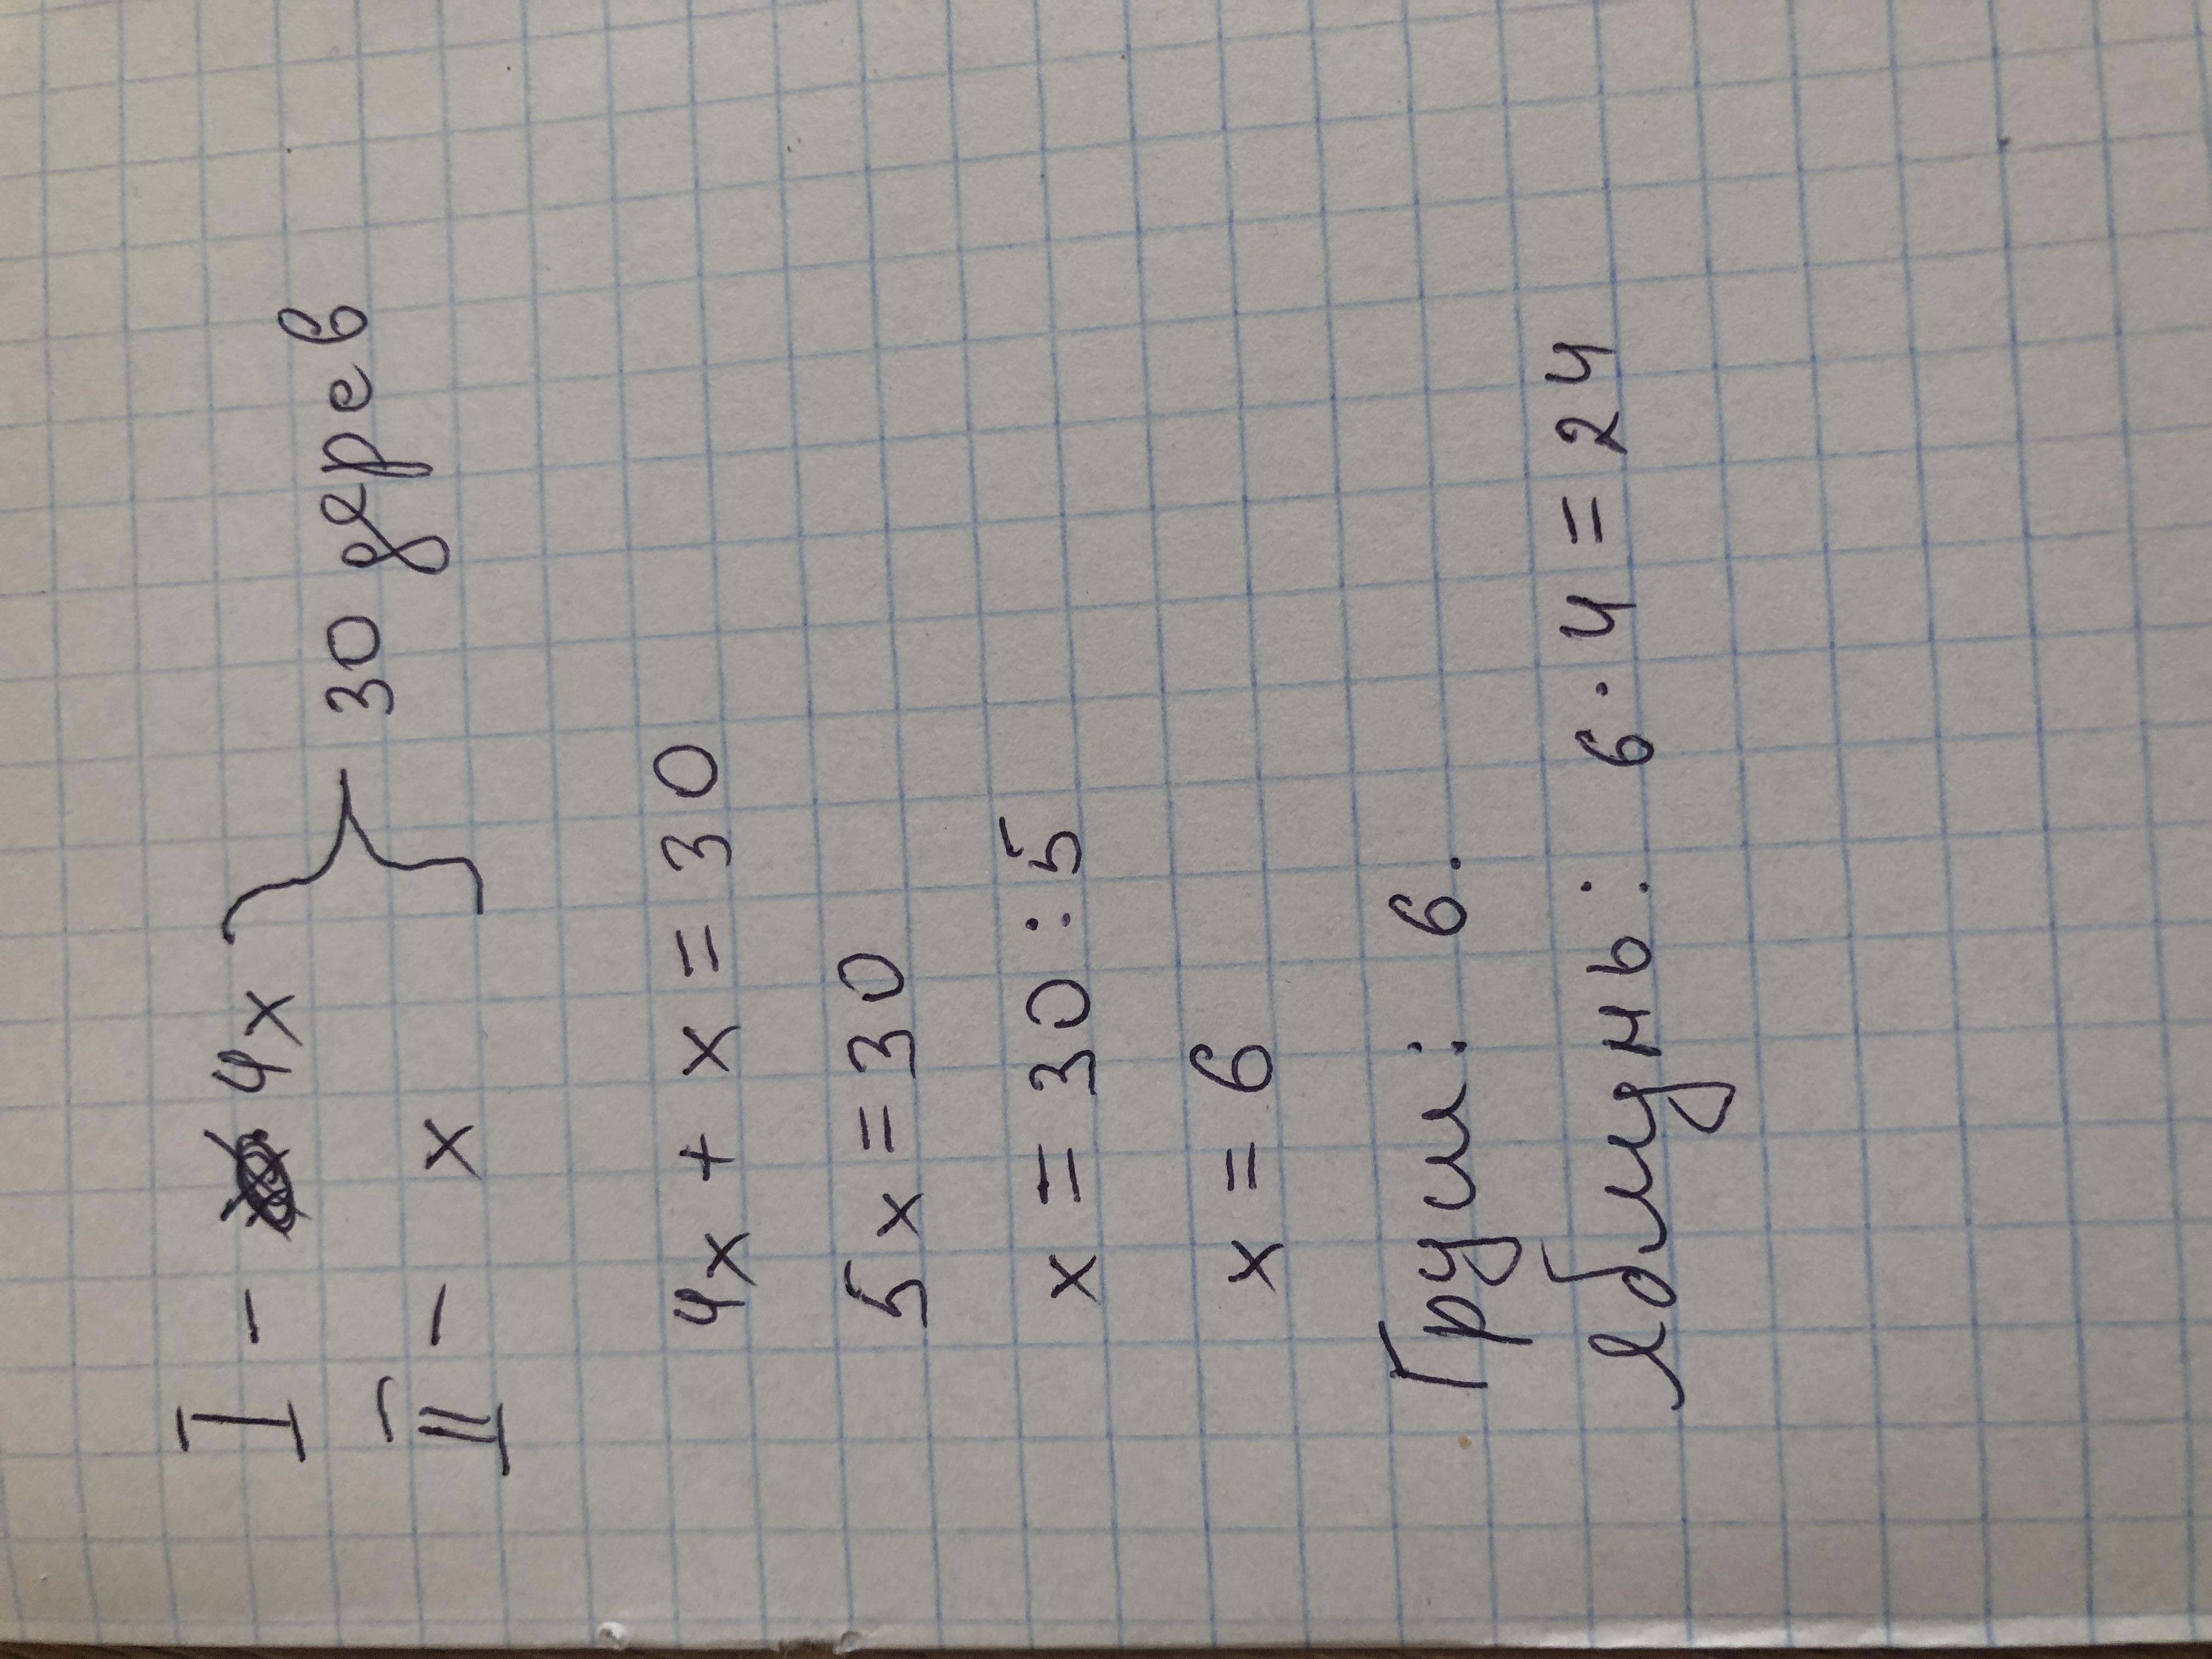 I - 4x
II - x
30 дерев
4x + x = 30
5x = 30
x = 30 : 5
x = 6
Груш: 6.
яблунь: 6 · 4 = 24